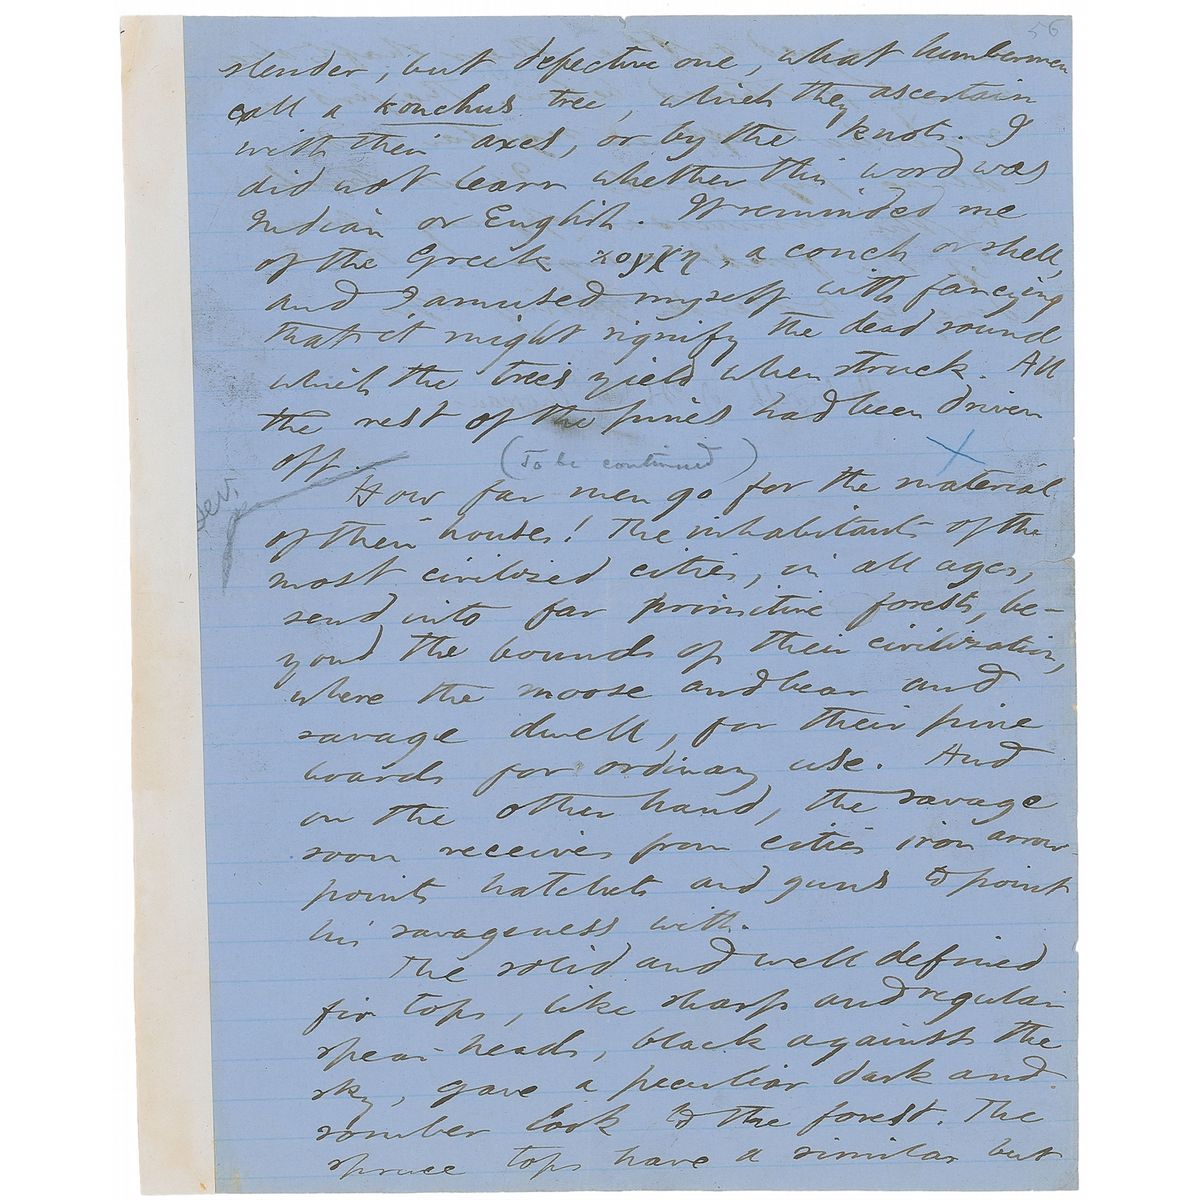 56
slender, but defective one, what lumbermen
call a konchus tree, which they ascertain
with their axes, or by the knots. I
did not learn whether this word was
Indian or English. It reminded me
of the Greek κογχη, a conch or shell,
and I amused myself with fancying
that it might signify the dead sound
which the trees yield when struck. All
the rest of the pines had been driven
off.
(To be continued)
How far men go for the material
of their houses! The inhabitants of the
most civilized cities, in all ages,
send into far primitive forests, be-
yond the bounds of their civilization,
where the moose and bear and
savage dwell, for their pine
boards for ordinary use. And
on the other hand, the savage
soon receives from cities iron arrow-
points hatchets and guns to point
his savageness with.
The solid and well defined
fir tops, like sharp and regular
spear-heads, black against the
sky, gave a peculiar dark and
somber look to the forest. The
spruce tops have a similar but